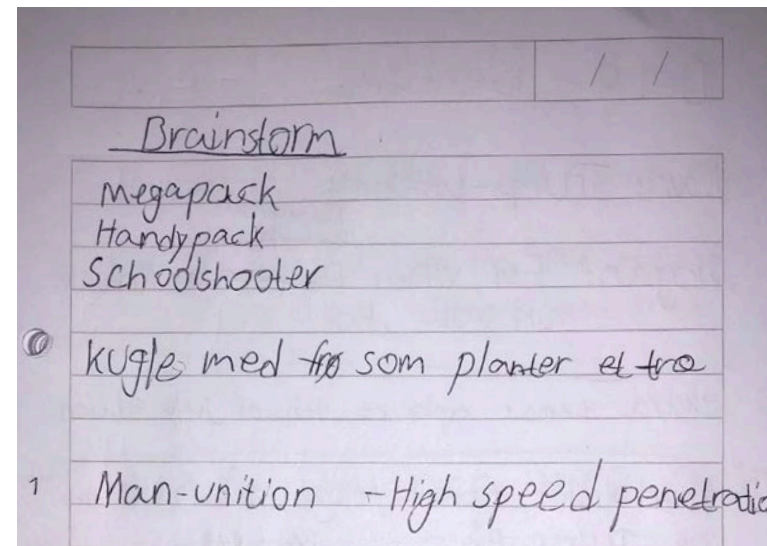 / /
Brainstorm
Megapack
Handypack
Schoolshooter
Kugle med frø som planter et træ
1 Man-unition - High speed penetratio